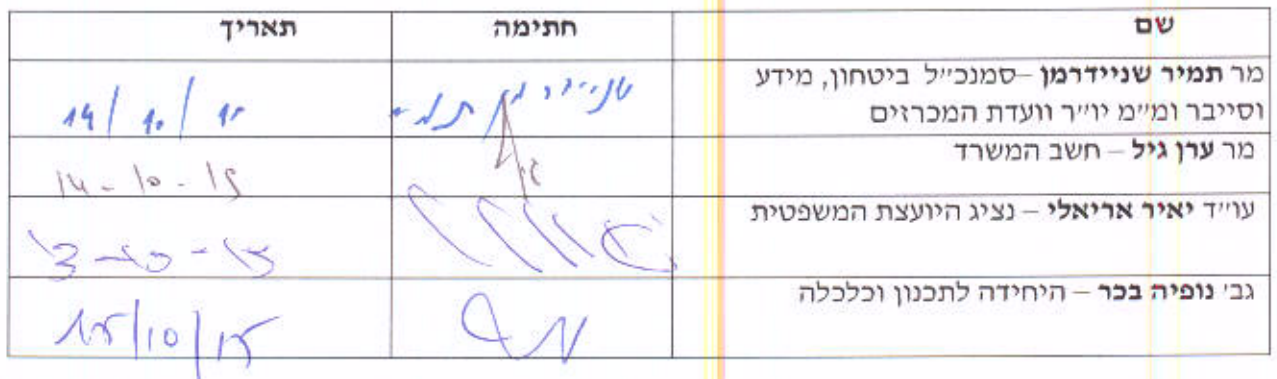 שם חתימה תאריך
מר תמיר שניידרמן –סמנכ״ל ביטחון, מידע שניידרמן תמיר 14/10/15
וסייבר ומ״מ יו״ר וועדת המכרזים
מר ערן גיל – חשב המשרד 14-10-15
עו״ד יאיר אריאלי – נציג היועצת המשפטית 13-10-15
גב׳ נופיה בכר – היחידה לתכנון וכלכלה 15/10/15